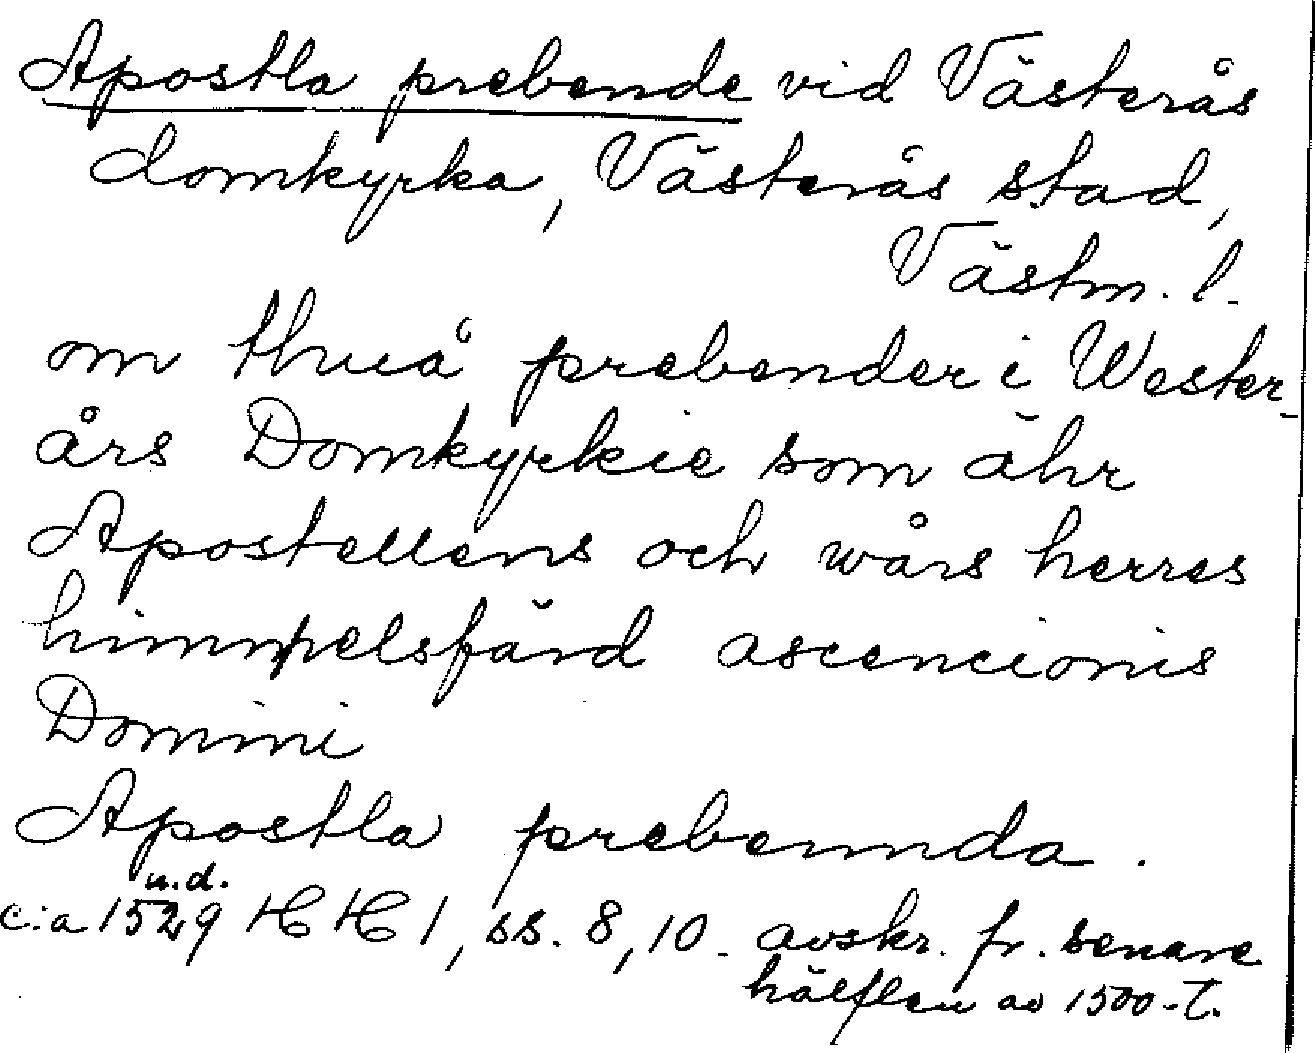 Apostla prebende vid Västerås
domkyrka, Västerås stad,
Västm. l.
om thuå prebender i Wester-
års Domkyrkie som ähr
Apostellens och wårs herres
himmpelsfärd ascencionis
Domini
Apostla prebennda.
u.d.
c:a 1529 HH 1, ss. 8, 10. avskr. fr. senare
hälften av 1500-t.